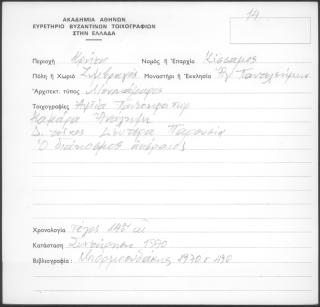 14
ΑΚΑΔΗΜΙΑ ΑΘΗΝΩΝ
ΕΥΡΕΤΗΡΙΟ ΒΥΖΑΝΤΙΝΩΝ ΤΟΙΧΟΓΡΑΦΙΩΝ
ΣΤΗΝ ΕΛΛΑΔΑ
Περιοχή Κρήτη Νομός ή Ἐπαρχία Κίσσαμος
Πόλη ή Χωριό Μοναστήρι ή Ἐκκλησία Ἁγ. Παντελεήμων
Ἀρχιτεκτ. τύπος Μονόχωρος
Τοιχογραφίες Ἁψίδα
Καμάρα Ἀνάληψη
Δ. τοίχος Δευτέρα Παρουσία
Ὁ διάκοσμος
Χρονολογία τέλος 14ου
Κατάσταση Συντήρηση 1970
Βιβλιογραφία : Μπορμπουδάκης 1970